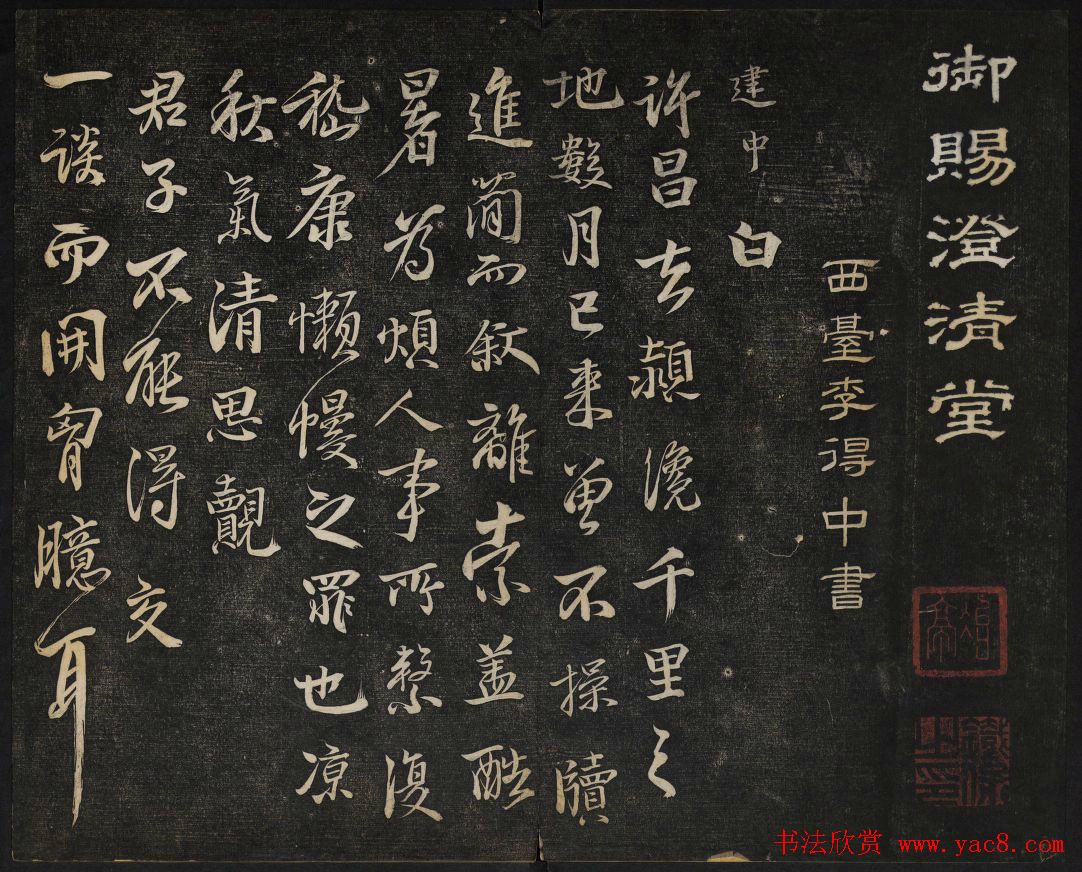 御賜澄清堂
西臺李得中書
建中白
許昌去潁纔千里之
地數月已来曾不操牘
進簡而敘離索盖酷
暑為煩人事所繫復
嵇康懶慢之罪也凉
秋氣清思覿
君子不能得交
一談而開胷臆耳
书法欣赏 www.yac8.com